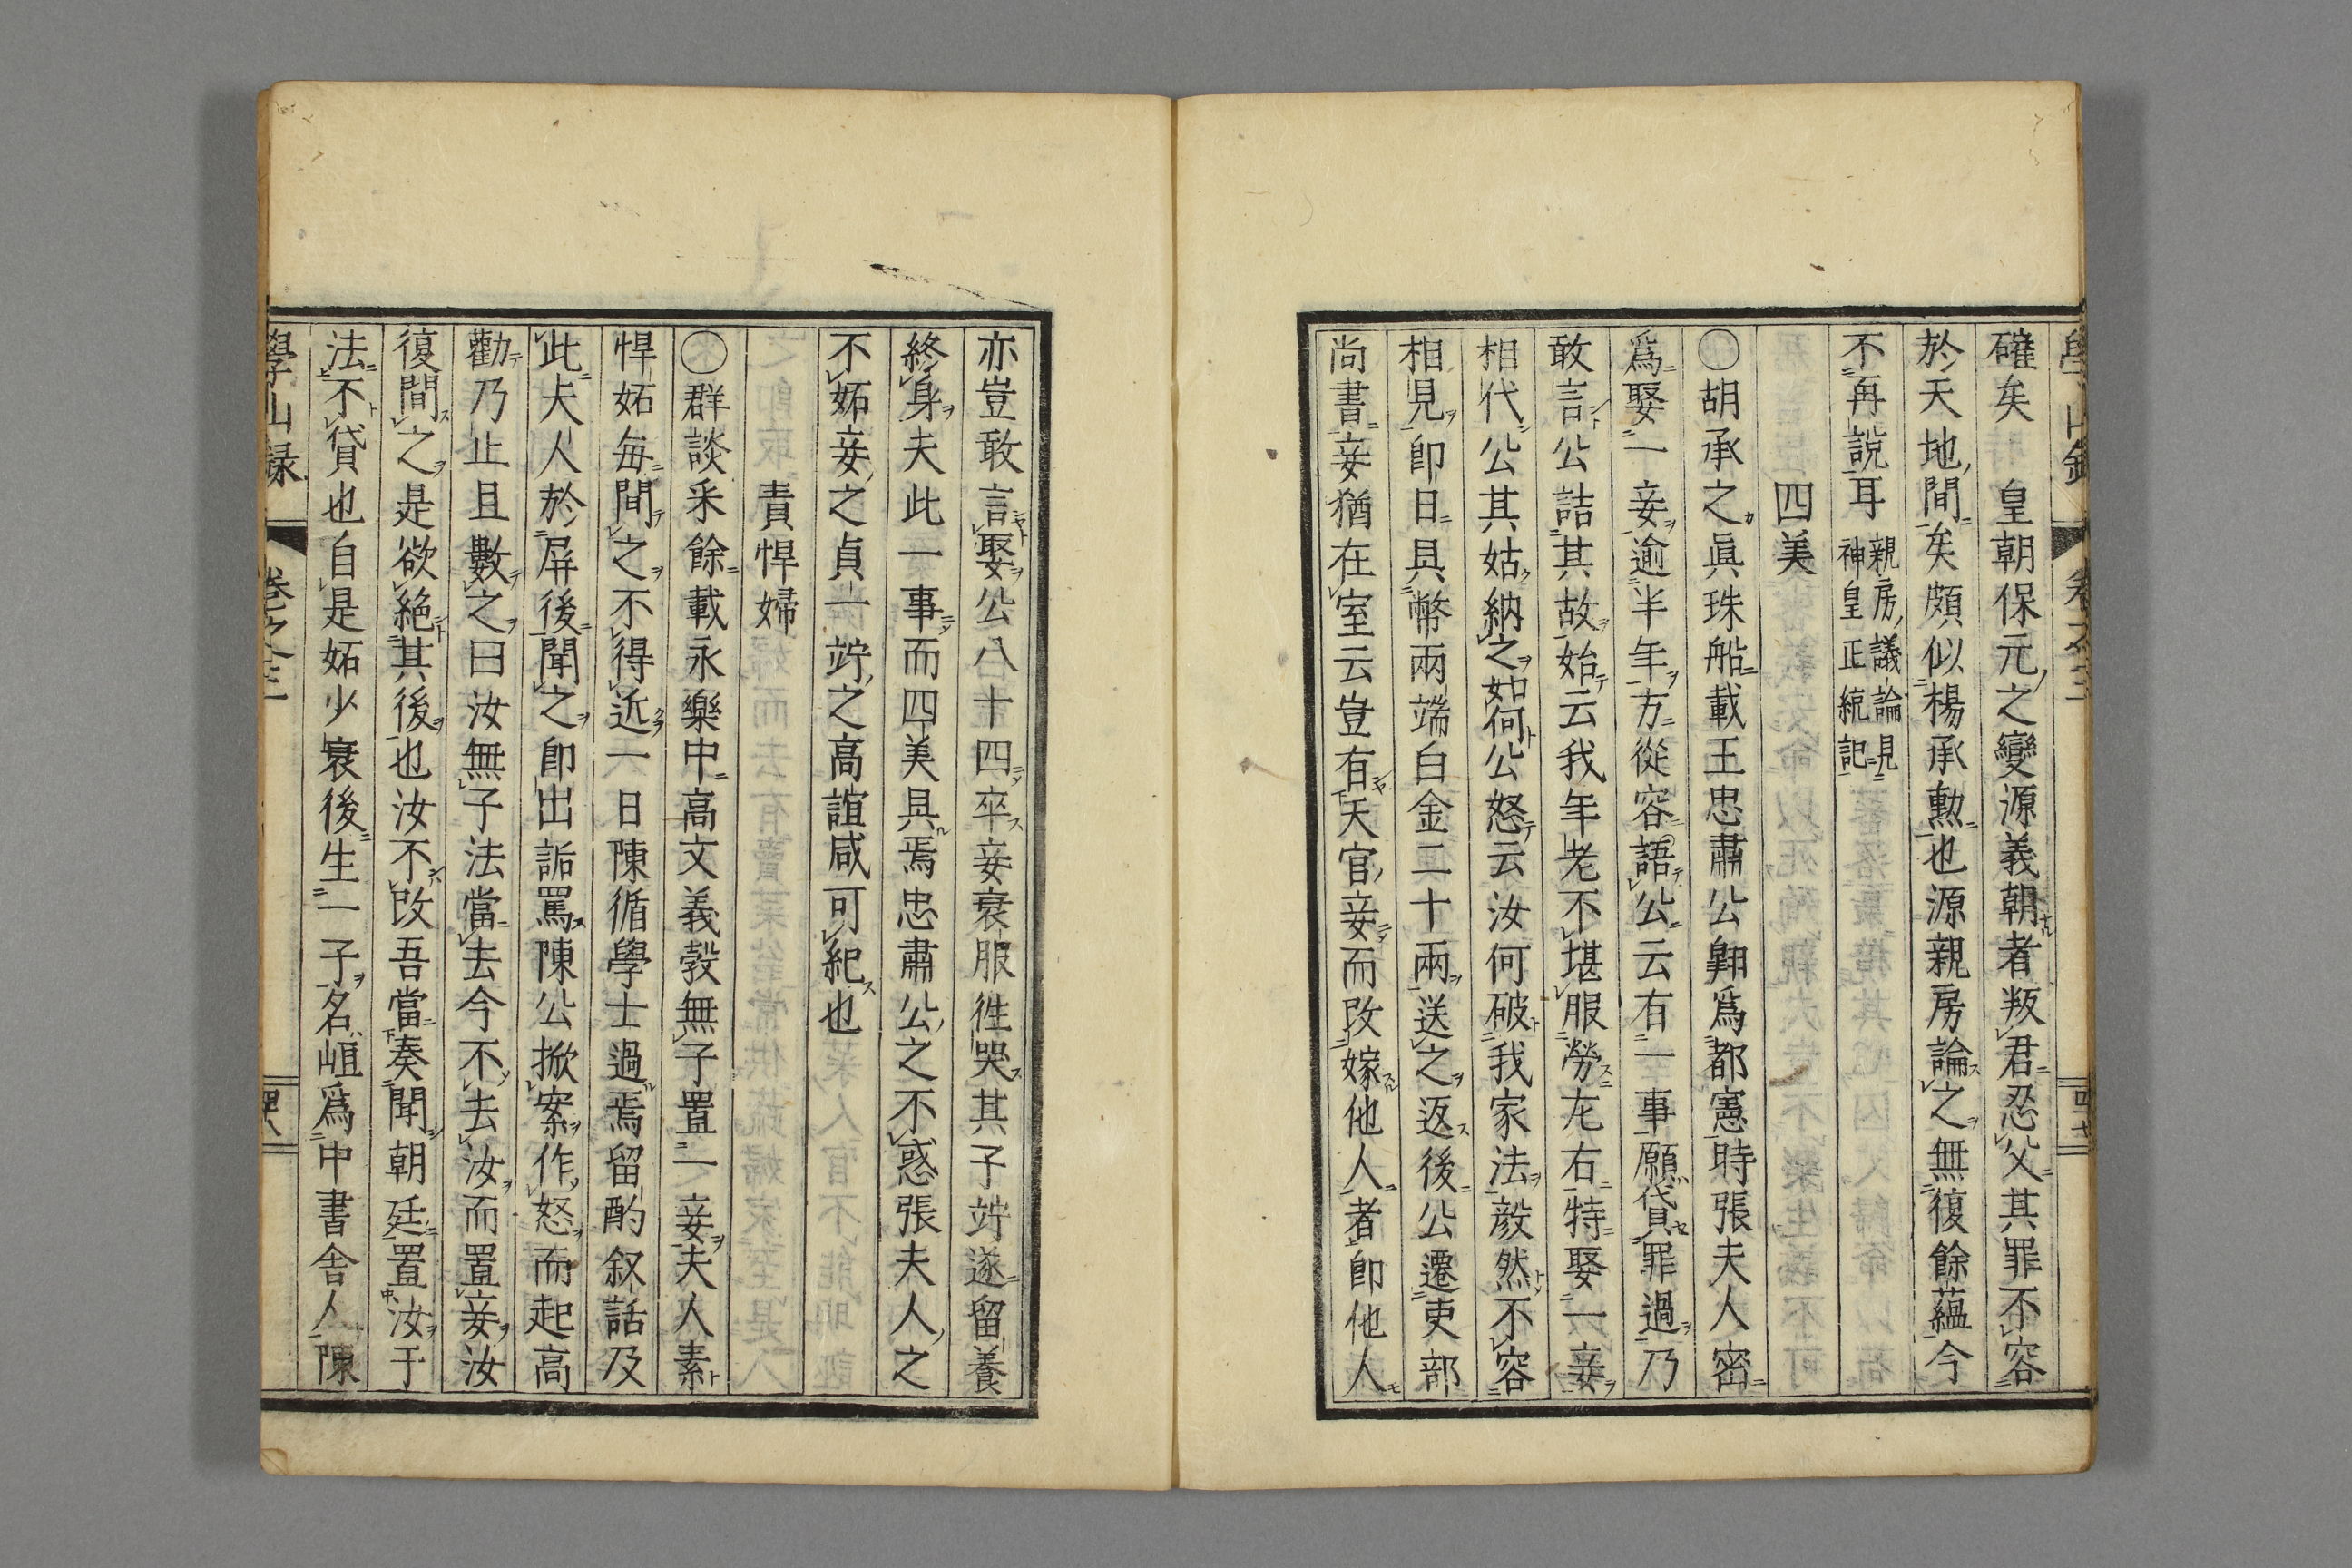 確矣　皇朝保元之變源義朝者叛君忍父其罪不容
於天地間矣頗似楊承勲也源親房論之無復餘蘊今
不再說耳親房議論見神皇正統記
四美
〇胡承之眞珠船載王忠肅公翺爲都憲時張夫人密
爲娶一妾逾半年方從容語公云有一事願貸罪過乃
敢言公詰其故始云我年老不堪服勞左右特娶一妾
相代公其姑納之如何公怒云汝何破我家法毅然不容
相見卽日具幣兩端白金二十兩送之返後公遷吏部
尚書妾猶在室云豈有天官妾而改嫁他人者卽他人
亦豈敢言娶公八十四卒妾衰服徃哭其子竚遂留養
終身夫此一事而四美具焉忠肅公之不惑張夫人之
不妬妾之貞一竚之高誼咸可紀也
責悍婦
〇群談采餘載永樂中高文義轂無子置一妾夫人素
悍妬毎間之不得近一日陳循學士過焉留酌叙話及
此夫人於屏後聞之卽出詬罵陳公掀案作怒而起高
勸乃止且數之曰汝無子法當去今不去汝而置妾汝
復間之是欲絶其後也汝不改吾當奏聞朝廷置汝于
法不貸也自是妬少衰後生一子名峘爲中書舍人陳
學山録
卷之三
四十八